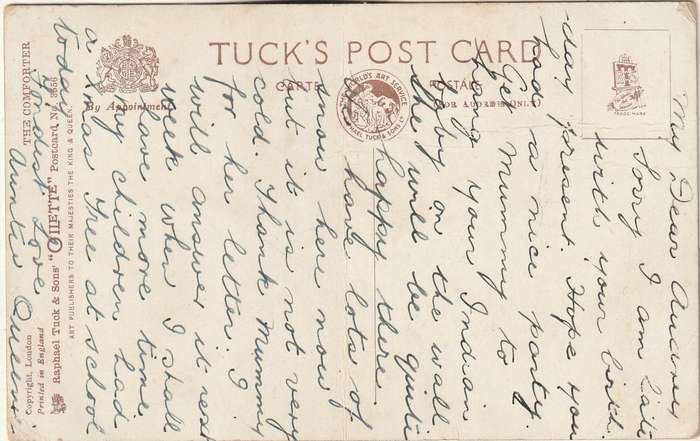 TUCK'S POST CARD
CARTE POSTALE
By Appointment
(FOR ADDRESS ONLY)
THE WORLD'S ART SERVICE
RAPHAEL TUCK & SONS LD
TRADE MARK
THE COMFORTER
Raphael Tuck & Sons' "OILETTE" Postcard, No. 3556
ART PUBLISHERS TO THEIR MAJESTIES THE KING & QUEEN.
Copyright, London
Printed in England
My Dear Audrey
Sorry I am late
with your birth
-day present. Hope you
had a nice party.
Get Mummy to
hang your Indian
baby on the wall
she will be quite
happy there.
We have lots of
snow here now
but it is not very
cold. Thank Mummy
for her letter I
will answer it next
week when I shall
have more time.
My children had
a Xmas Tree at school
today.
Fondest Love
Auntie